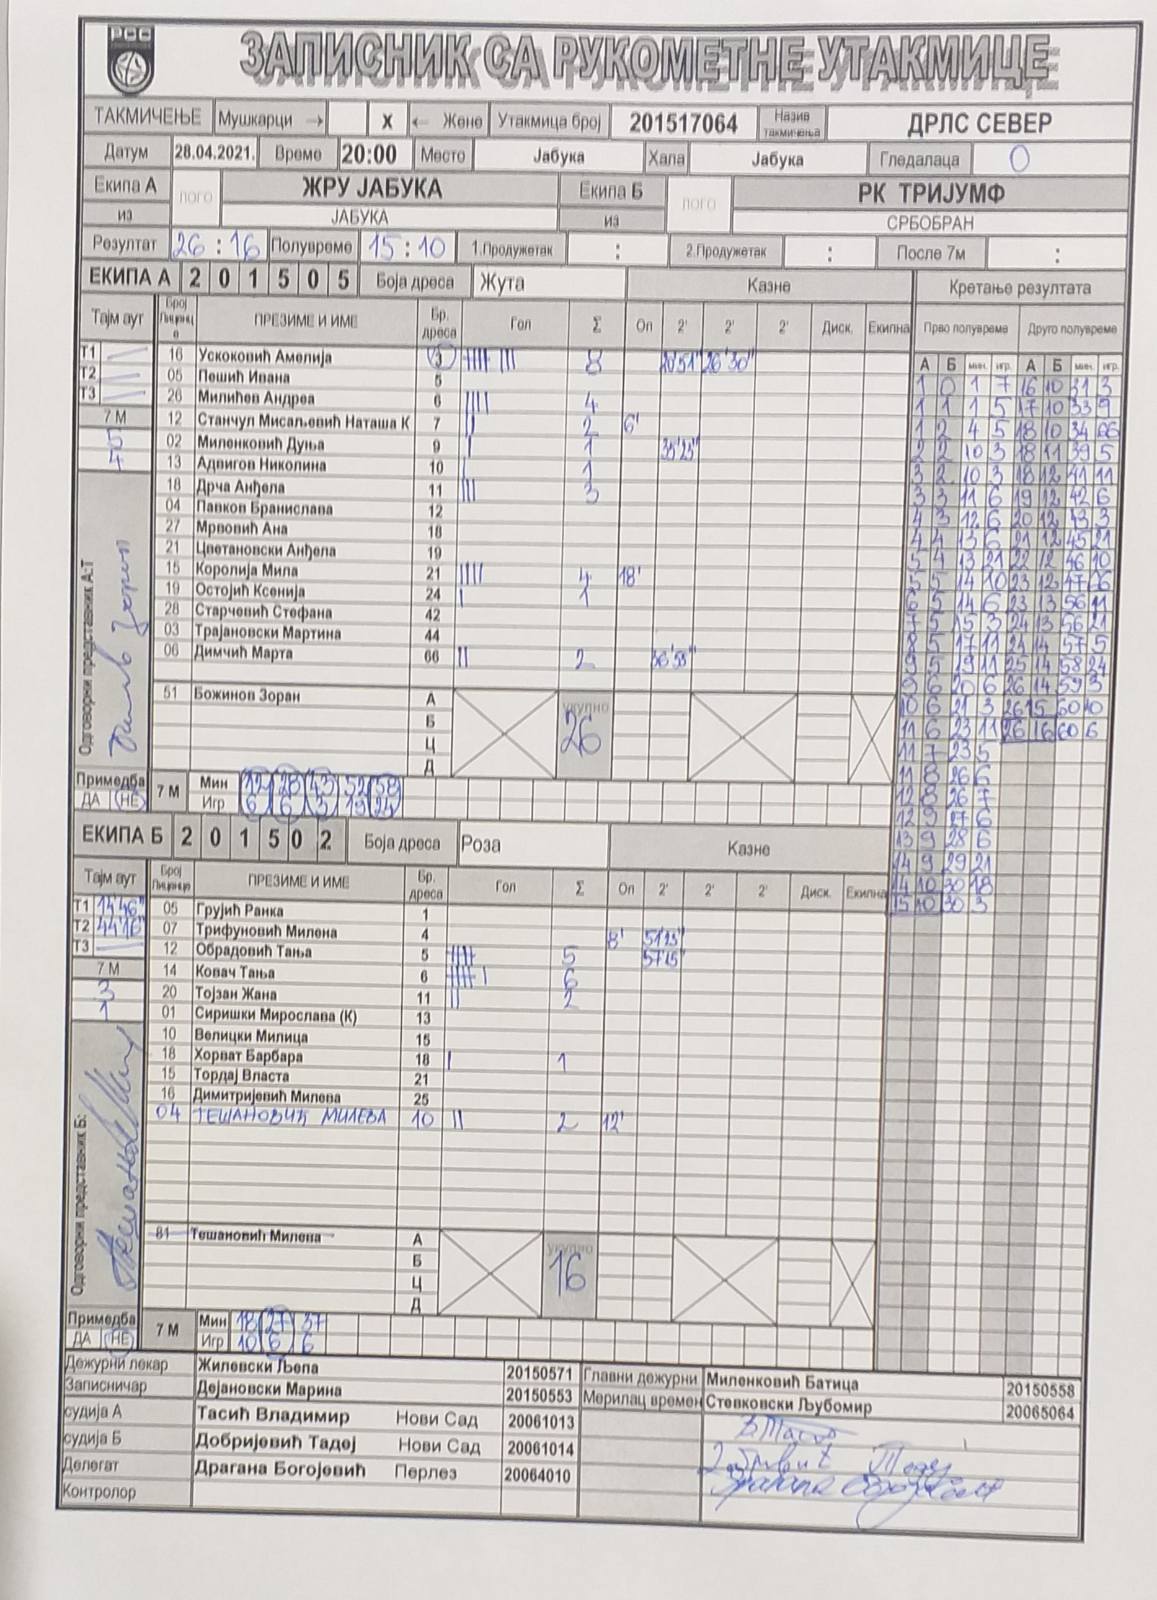 РСС
ЗАПИСНИК СА РУКОМЕТНЕ УТАКМИЦЕ
ТАКМИЧЕЊЕ Мушкарци → X ← Жене Утакмица број 201517064 Назив такмичења ДРЛС СЕВЕР
Датум 28.04.2021. Време 20:00 Место Јабука Хала Јабука Гледалаца 0
Екипа А лого ЖРУ ЈАБУКА Екипа Б лого РК ТРИЈУМФ
из ЈАБУКА из СРБОБРАН
Резултат 26 : 16 Полувреме 15 : 10 1.Продужетак : 2.Продужетак : После 7м :
ЕКИПА А 2 0 1 5 0 5 Боја дреса Жута Казне Кретање резултата
Тајм аут Број Лиценце ПРЕЗИМЕ И ИМЕ Бр. дреса Гол Σ Оп 2' 2' 2' Диск. Екипна Прво полувреме Друго полувреме
А Б мин. игр. А Б мин. игр.
Т1 16 Ускоковић Амелија 3 8 26'30"
Т2 05 Пешић Ивана 5
Т3 26 Милићев Андреа 6 4
7 М 12 Станчул Мисаљевић Наташа К 7 2 6'
5 02 Миленковић Дуња 9 1
4 13 Адвигов Николина 10 1
18 Дрча Анђела 11 3
04 Павков Бранислава 12
27 Мрвовић Ана 18
21 Цветановски Анђела 19
15 Королија Мила 21 4 18'
19 Остојић Ксенија 24 1
28 Старчевић Стефана 42
03 Трајановски Мартина 44
06 Димчић Марта 66 2
51 Божинов Зоран А укупно
Б 26
Ц
Д
Одговорни представник А:Т
Примедба ДА НЕ 7 М Мин 12 28 43 52 58
Игр 6 6 3 19 24
1 0 1 7 16 10 31 3
1 1 1 5 17 10 33 9
1 2 4 5 18 10 34 66
2 2 10 3 18 11 39 5
3 2 10 3 18 12 41 11
3 3 11 6 19 12 42 6
4 3 12 6 20 12 43 3
4 4 13 6 21 12 45 21
5 4 13 21 22 12 46 10
5 5 14 10 23 12 47 66
6 5 14 6 23 13 56 11
7 5 15 3 24 13 56 21
8 5 17 11 24 14 57 5
9 5 19 11 25 14 58 24
9 6 20 6 26 14 59 3
10 6 21 3 26 15 60 10
11 6 23 11 26 16 60 6
11 7 23 5
11 8 26 6
12 8 26 7
12 9 27 6
13 9 28 6
14 9 29 21
14 10 30 18
15 10 30 3
ЕКИПА Б 2 0 1 5 0 2 Боја дреса Роза Казне
Тајм аут Број Лиценце ПРЕЗИМЕ И ИМЕ Бр. дреса Гол Σ Оп 2' 2' 2' Диск. Екипна
Т1 14'46" 05 Грујић Ранка 1
Т2 44'16" 07 Трифуновић Милена 4 8' 51'23"
Т3 12 Обрадовић Тања 5 5 57'15"
7 М 14 Ковач Тања 6 6
3 20 Тојзан Жана 11 2
1 01 Сиришки Мирослава (К) 13
10 Велицки Милица 15
18 Хорват Барбара 18 1
15 Тордај Власта 21
16 Димитријевић Милева 25
04 ТЕШАНОВИЋ МИЛЕВА 10 2 12'
81 Тешановић Милева А укупно
Б 16
Ц
Д
Одговорни представник Б:
Примедба ДА НЕ 7 М Мин 18 27 37
Игр 10 6 6
Дежурни лекар Жилевски Љепа 20150571 Главни дежурни Миленковић Батица 20150558
Записничар Дејановски Марина 20150553 Мерилац времен Стевковски Љубомир 20065064
судија А Тасић Владимир Нови Сад 20061013
судија Б Добријевић Тадеј Нови Сад 20061014
Делегат Драгана Богојевић Перлез 20064010
Контролор